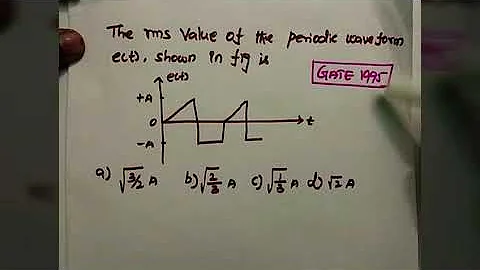 The rms value of the periodic waveform
e(t), shown in fig is
GATE 1995
e(t)
+A
0
t
-A
a) √3/2 A b) √2/3 A c) √1/3 A d) √2 A